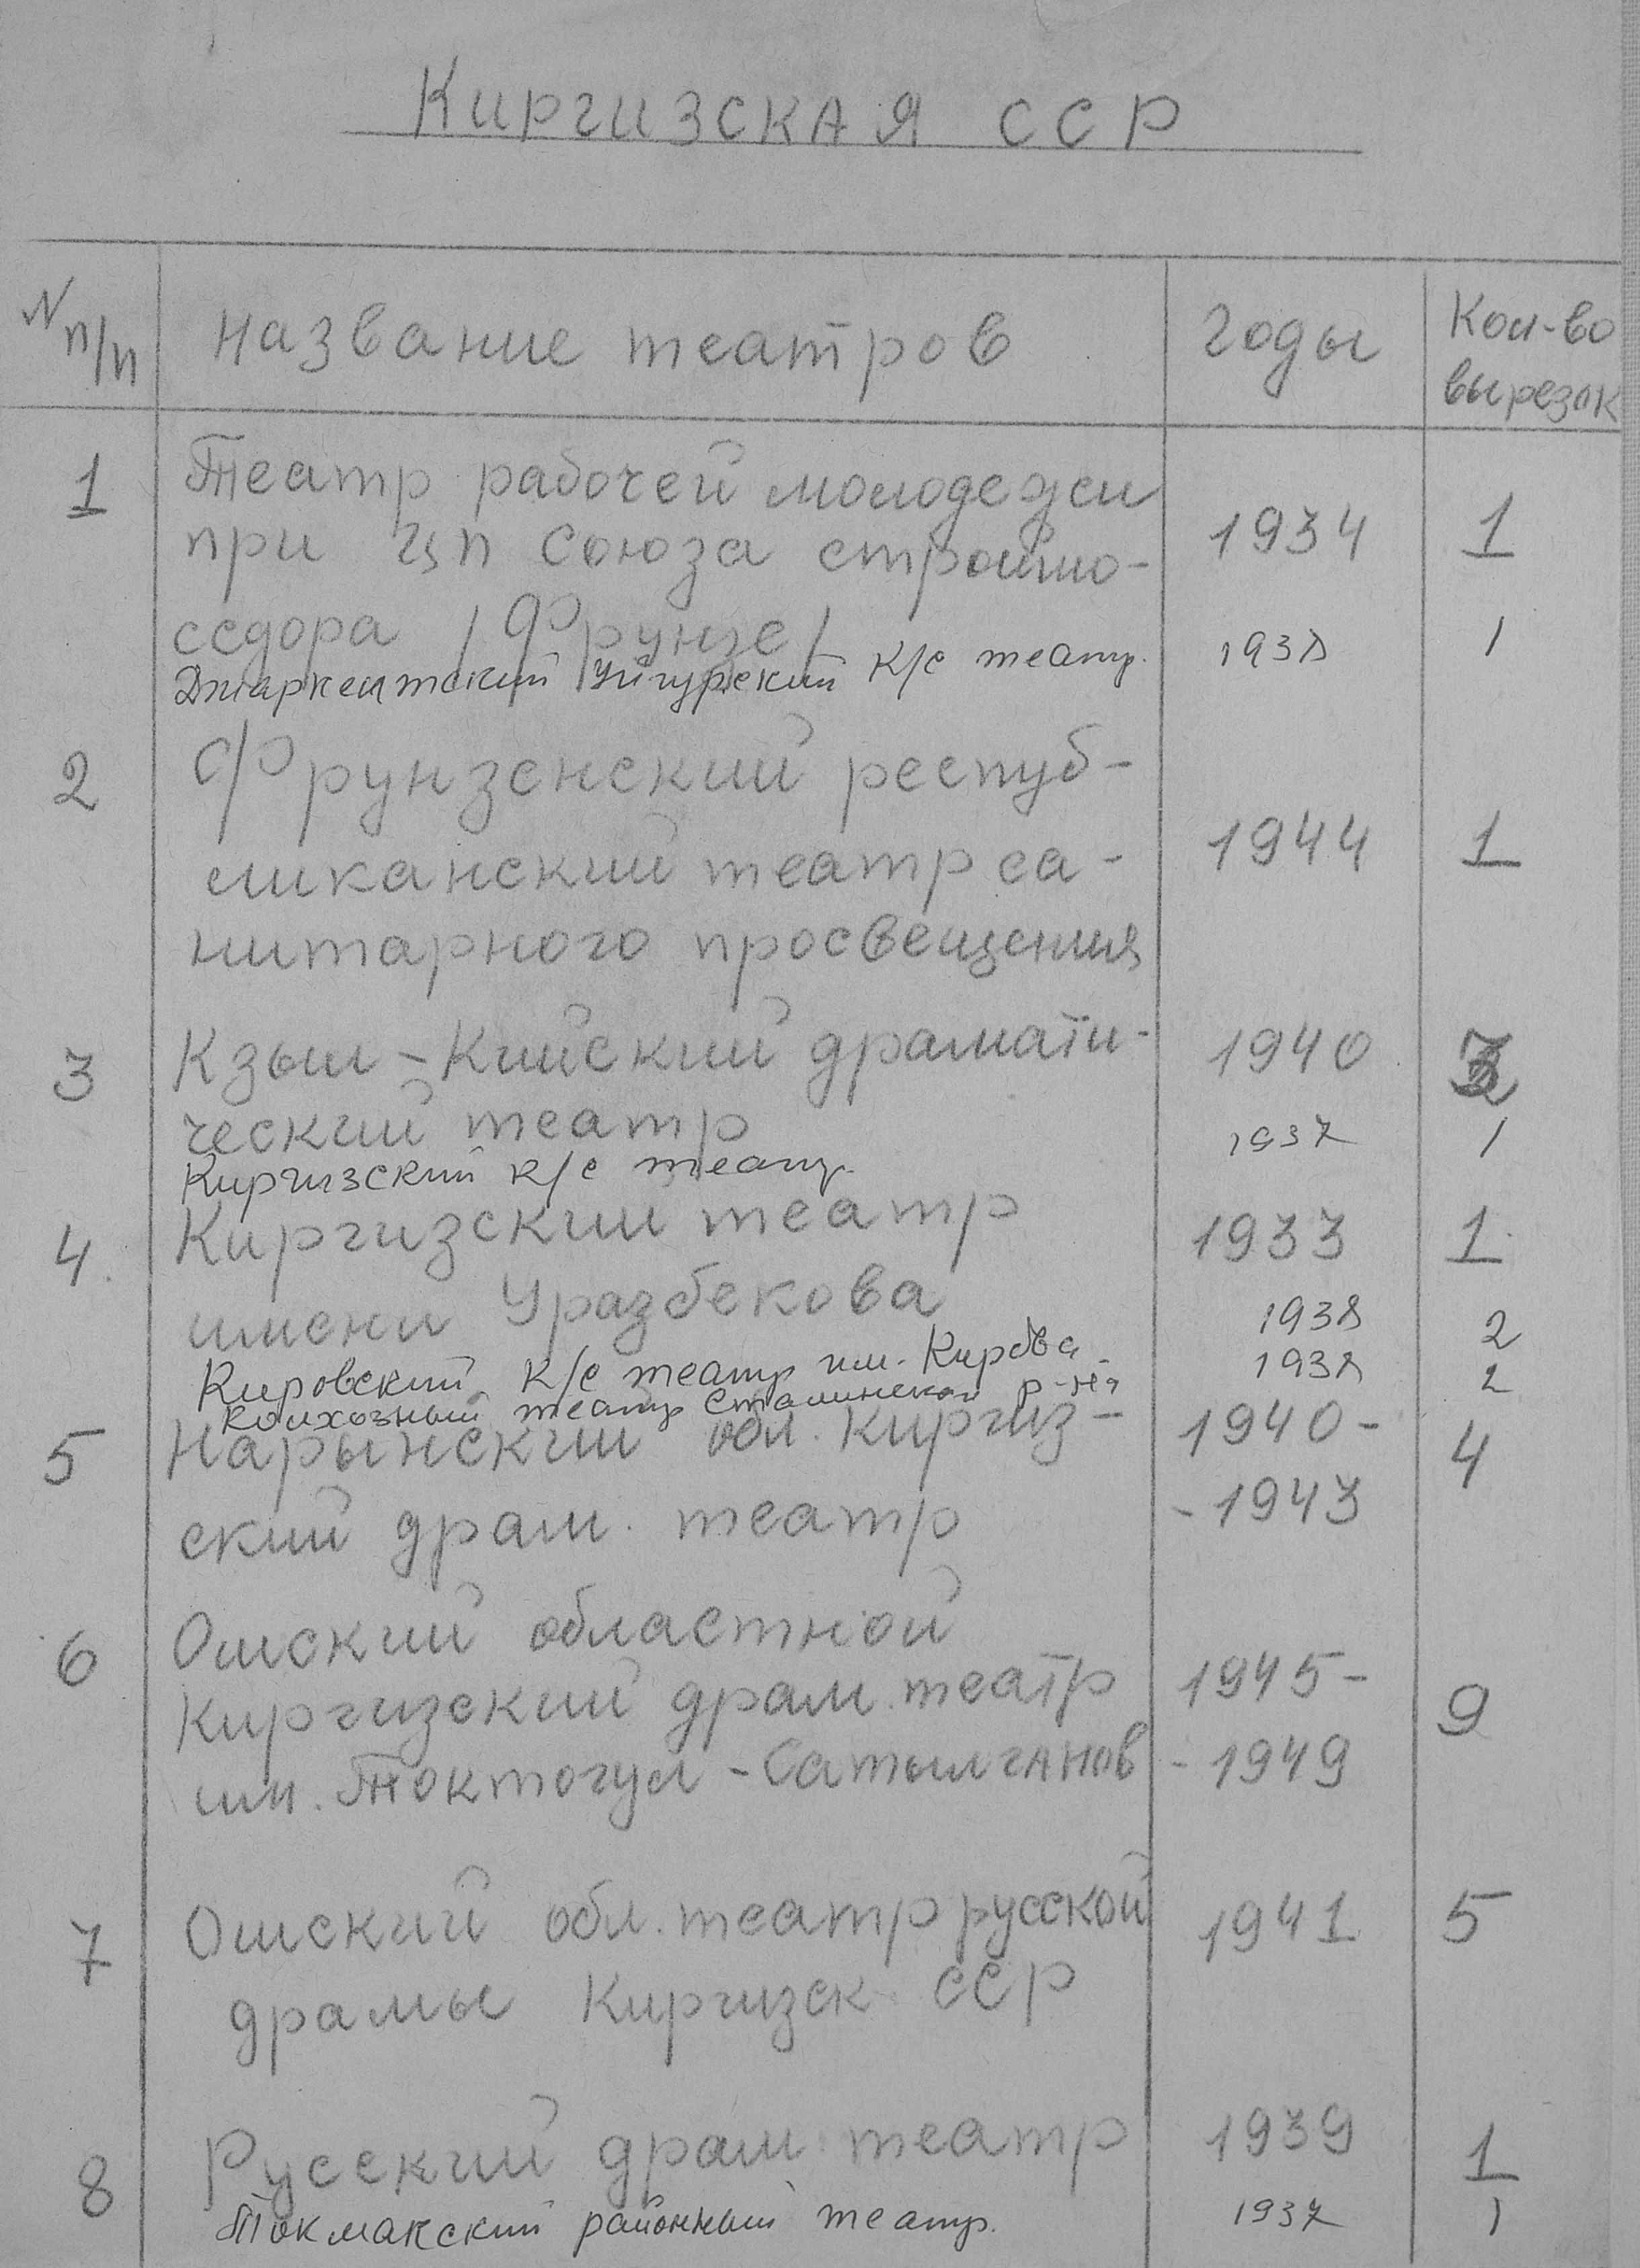 Киргизская ССР
N п/п Название театров Годы Кол-во вырезок
1 Театр рабочей молодежи
при ЦП Союза строймо-
ссдора /Фрунзе/ 1934 1
Джаркентский Уйгурский к/с театр. 1938 1
2 Фрунзенский респуб-
ликанский театр са- 1944 1
нитарного просвещения
3 Кзыл-Кийский драмати- 1940
ческий театр
Киргизский к/с театр. 1937 1
4. Киргизский театр 1933 1
имени Уразбекова
Кировский к/с театр им. Кирова 1938 2
Колхозный театр Сталинской р-на 1938 2
5 Нарынский обл. киргиз- 1940- 4
ский драм. театр -1943
6 Ошский областной
Киргизский драм. театр 1945- 9
им. Токтогул-Сатылганов -1949
7 Ошский обл. театр русской 1941 5
драмы Киргизск. ССР
8 Русский драм. театр 1939 1
Токмакский районный театр. 1937 1